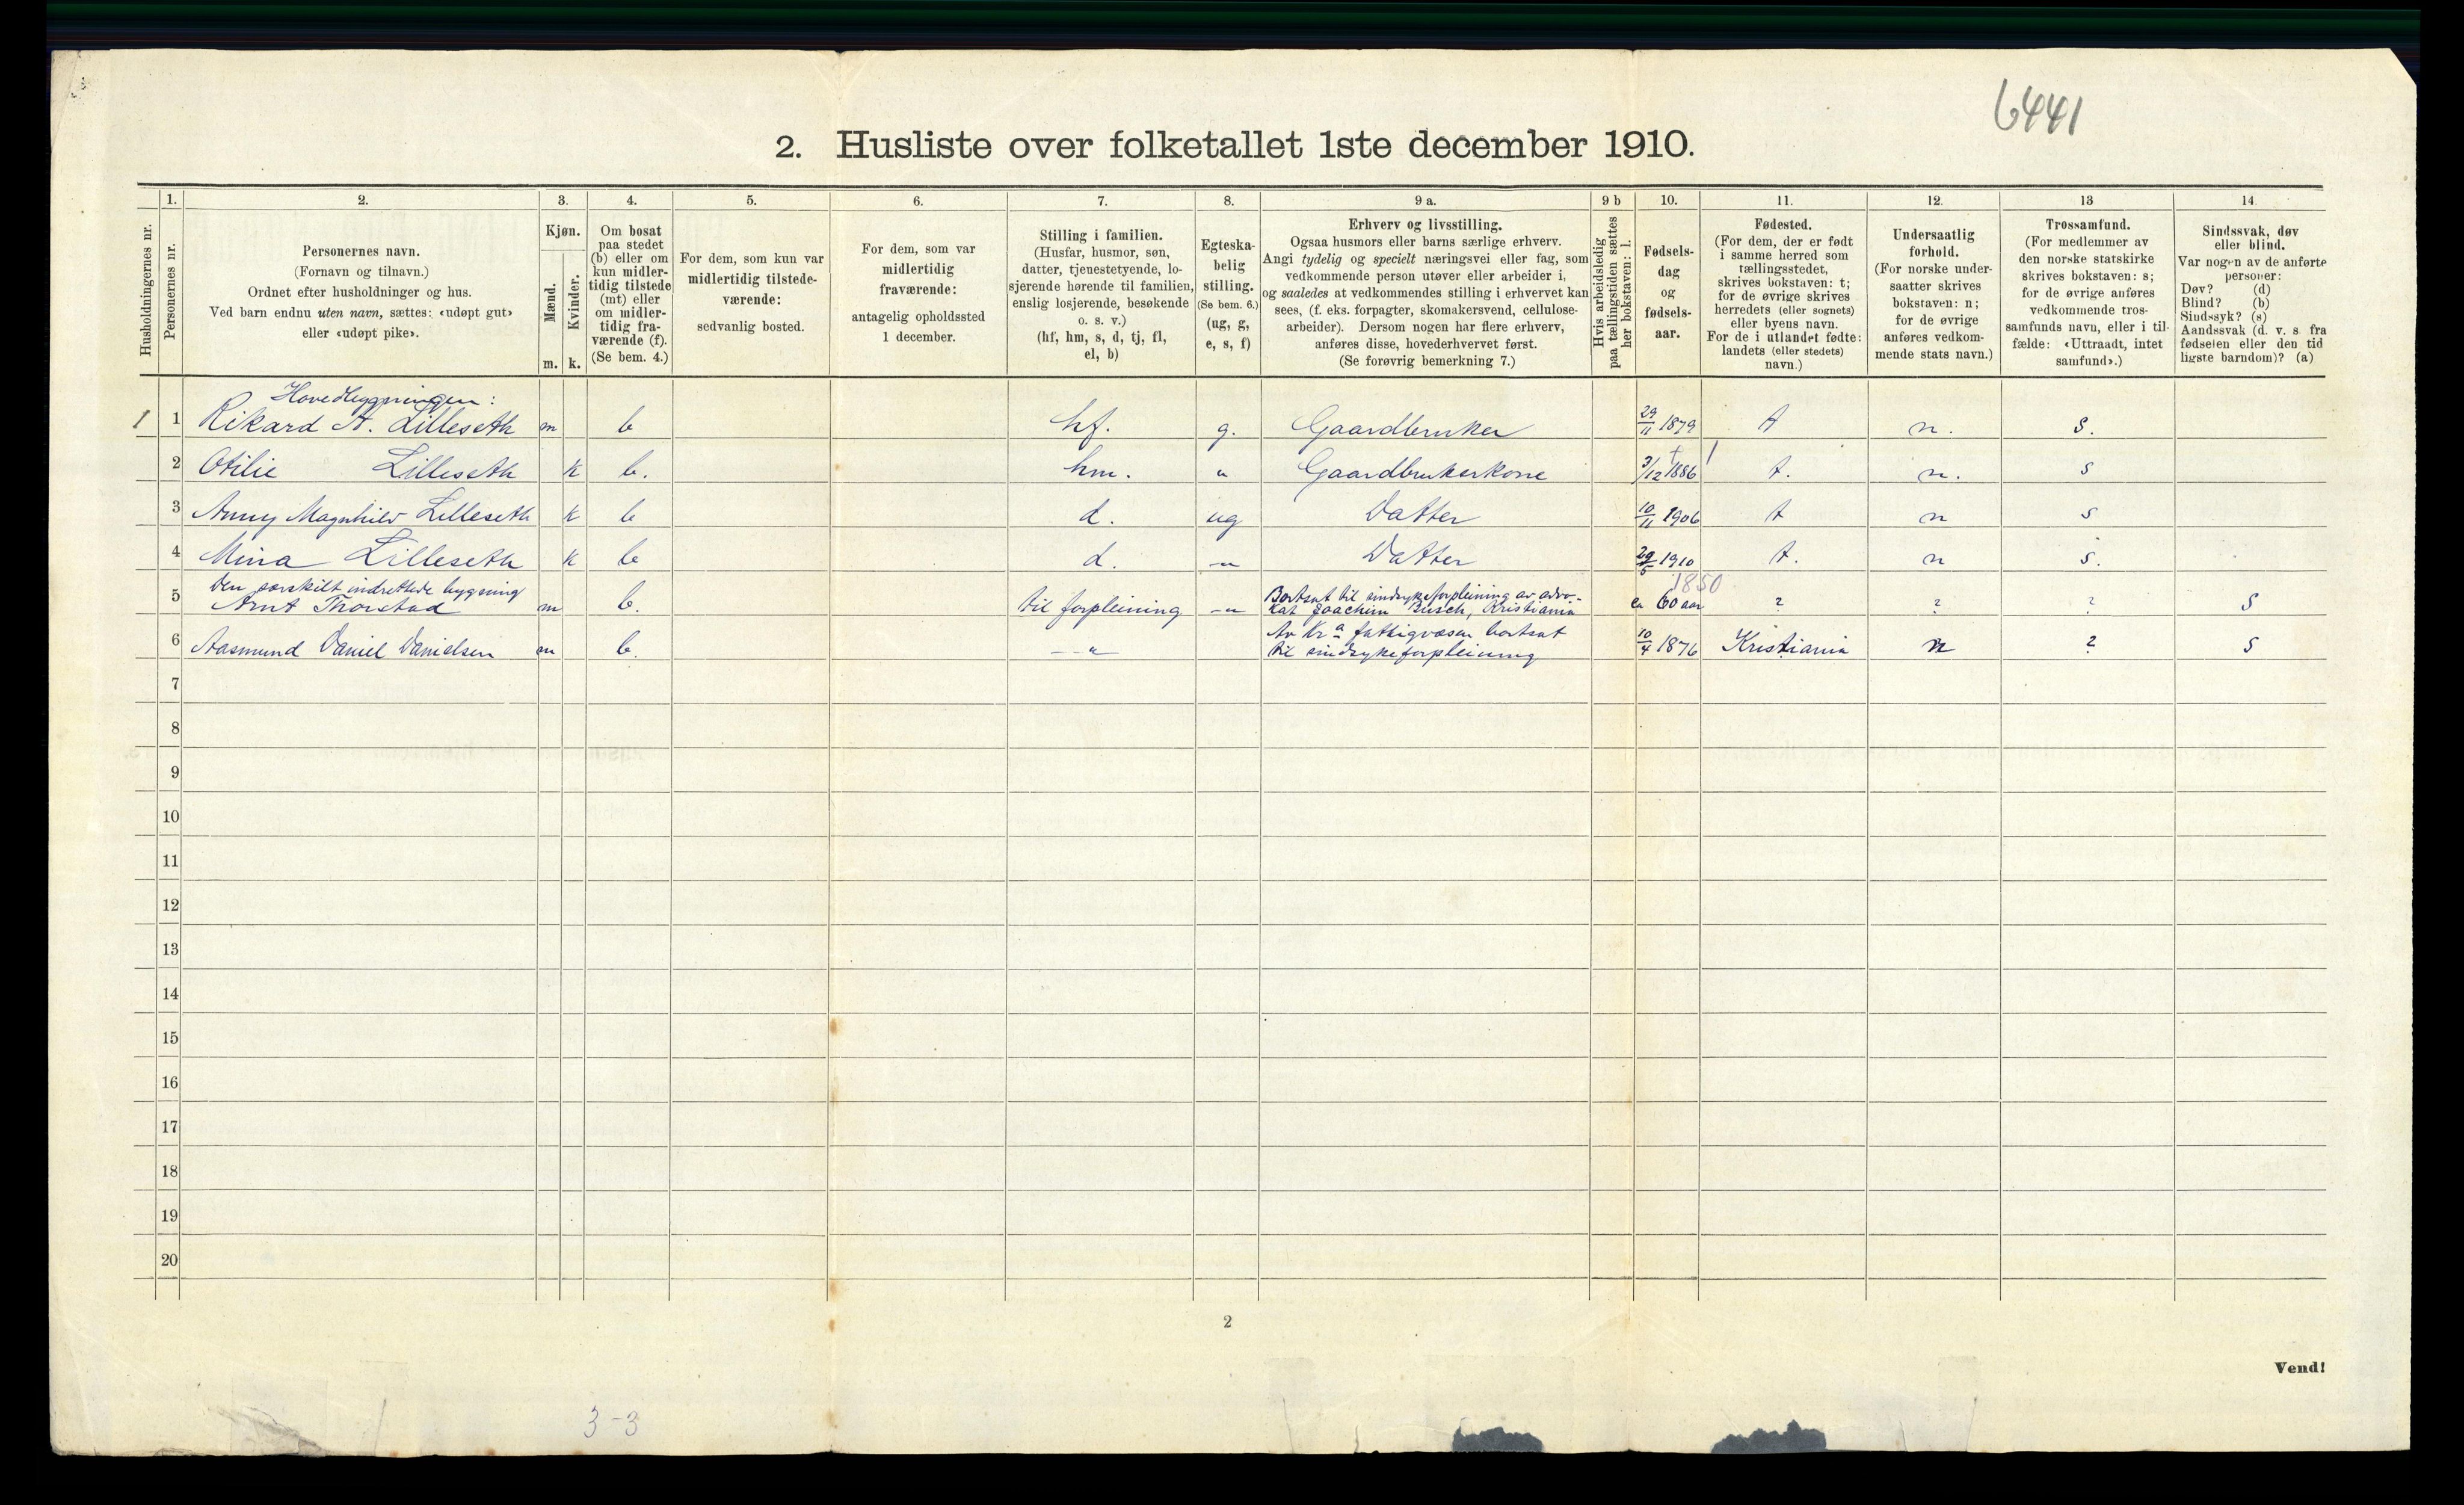 6441
2. Husliste over folketallet 1ste december 1910.
Husholdningernes nr.
1.
Personernes nr.
2.
Personernes navn.
(Fornavn og tilnavn.)
Ordnet efter husholdninger og hus.
Ved barn endnu uten navn, sættes: «udøpt gut»
eller «udøpt pike».
3.
Kjøn.
Mænd.
m.
Kvinder.
k.
4.
Om bosat
paa stedet
(b) eller om
kun midler-
tidig tilstede
(mt) eller
om midler-
tidig fra-
værende (f).
(Se bem. 4.)
5.
For dem, som kun var
midlertidig tilstede-
værende:
sedvanlig bosted.
6.
For dem, som var
midlertidig
fraværende:
antagelig opholdssted
1 december.
7.
Stilling i familien.
(Husfar, husmor, søn,
datter, tjenestetyende, lo-
sjerende hørende til familien,
enslig losjerende, besøkende
o. s. v.)
(hf, hm, s, d, tj, fl,
el, b)
8.
Egteska-
belig
stilling.
(Se bem. 6.)
(ug, g,
e, s, f)
9 a.
Erhverv og livsstilling.
Ogsaa husmors eller barns særlige erhverv.
Angi tydelig og specielt næringsvei eller fag, som
vedkommende person utøver eller arbeider i,
og saaledes at vedkommendes stilling i erhvervet kan
sees, (f. eks. forpagter, skomakersvend, cellulose-
arbeider). Dersom nogen har flere erhverv,
anføres disse, hovederhvervet først.
(Se forøvrig bemerkning 7.)
9 b
Hvis arbeidsledig
paa tællingstiden sættes
her bokstaven: l.
10.
Fødsels-
dag
og
fødsels-
aar.
11.
Fødested.
(For dem, der er født
i samme herred som
tællingsstedet,
skrives bokstaven: t;
for de øvrige skrives
herredets (eller sognets)
eller byens navn.
For de i utlandet fødte:
landets (eller stedets)
navn.)
12.
Undersaatlig
forhold.
(For norske under-
saatter skrives
bokstaven: n;
for de øvrige
anføres vedkom-
mende stats navn.)
13
Trossamfund.
(For medlemmer av
den norske statskirke
skrives bokstaven: s;
for de øvrige anføres
vedkommende tros-
samfunds navn, eller i til-
fælde: «Uttraadt, intet
samfund».)
14
Sindssvak, døv
eller blind.
Var nogen av de anførte
personer:
Døv? (d)
Blind? (b)
Sindssyk? (s)
Aandssvak (d. v. s. fra
fødselen eller den tid
ligste barndom)? (a)
Hovedbygningen:
1 1 Rikard A. Lilleseth m b hf. g. Gaardbruker 29/11 1879 t n. s.
2 Otilie Lilleseth k b. hm. " Gaardbrukerkone 3/12 1886 t. n. s
3 Anny Magnhild Lilleseth k b d. ug Datter 10/11 1906 t n s
4 Mina Lilleseth k b d. -"- Datter 29/5 1910 t. n s.
1850
Den særskilt indrettede bygning
5 Arnt Thorstad m b. til forpleining -"- Bortsat til sindsykeforpleining av advo-
kat Joachim Busch, Kristiania ca 60 aar ? ? ? s
6 Aasmund Daniel Danielsen m b. -"- Av Kra fattigvæsen bortsat
til sindsykeforpleining 10/4 1876 Kristiania n ? s
7
8
9
10
11
12
13
14
15
16
17
18
19
20
2
Vend!
3-3